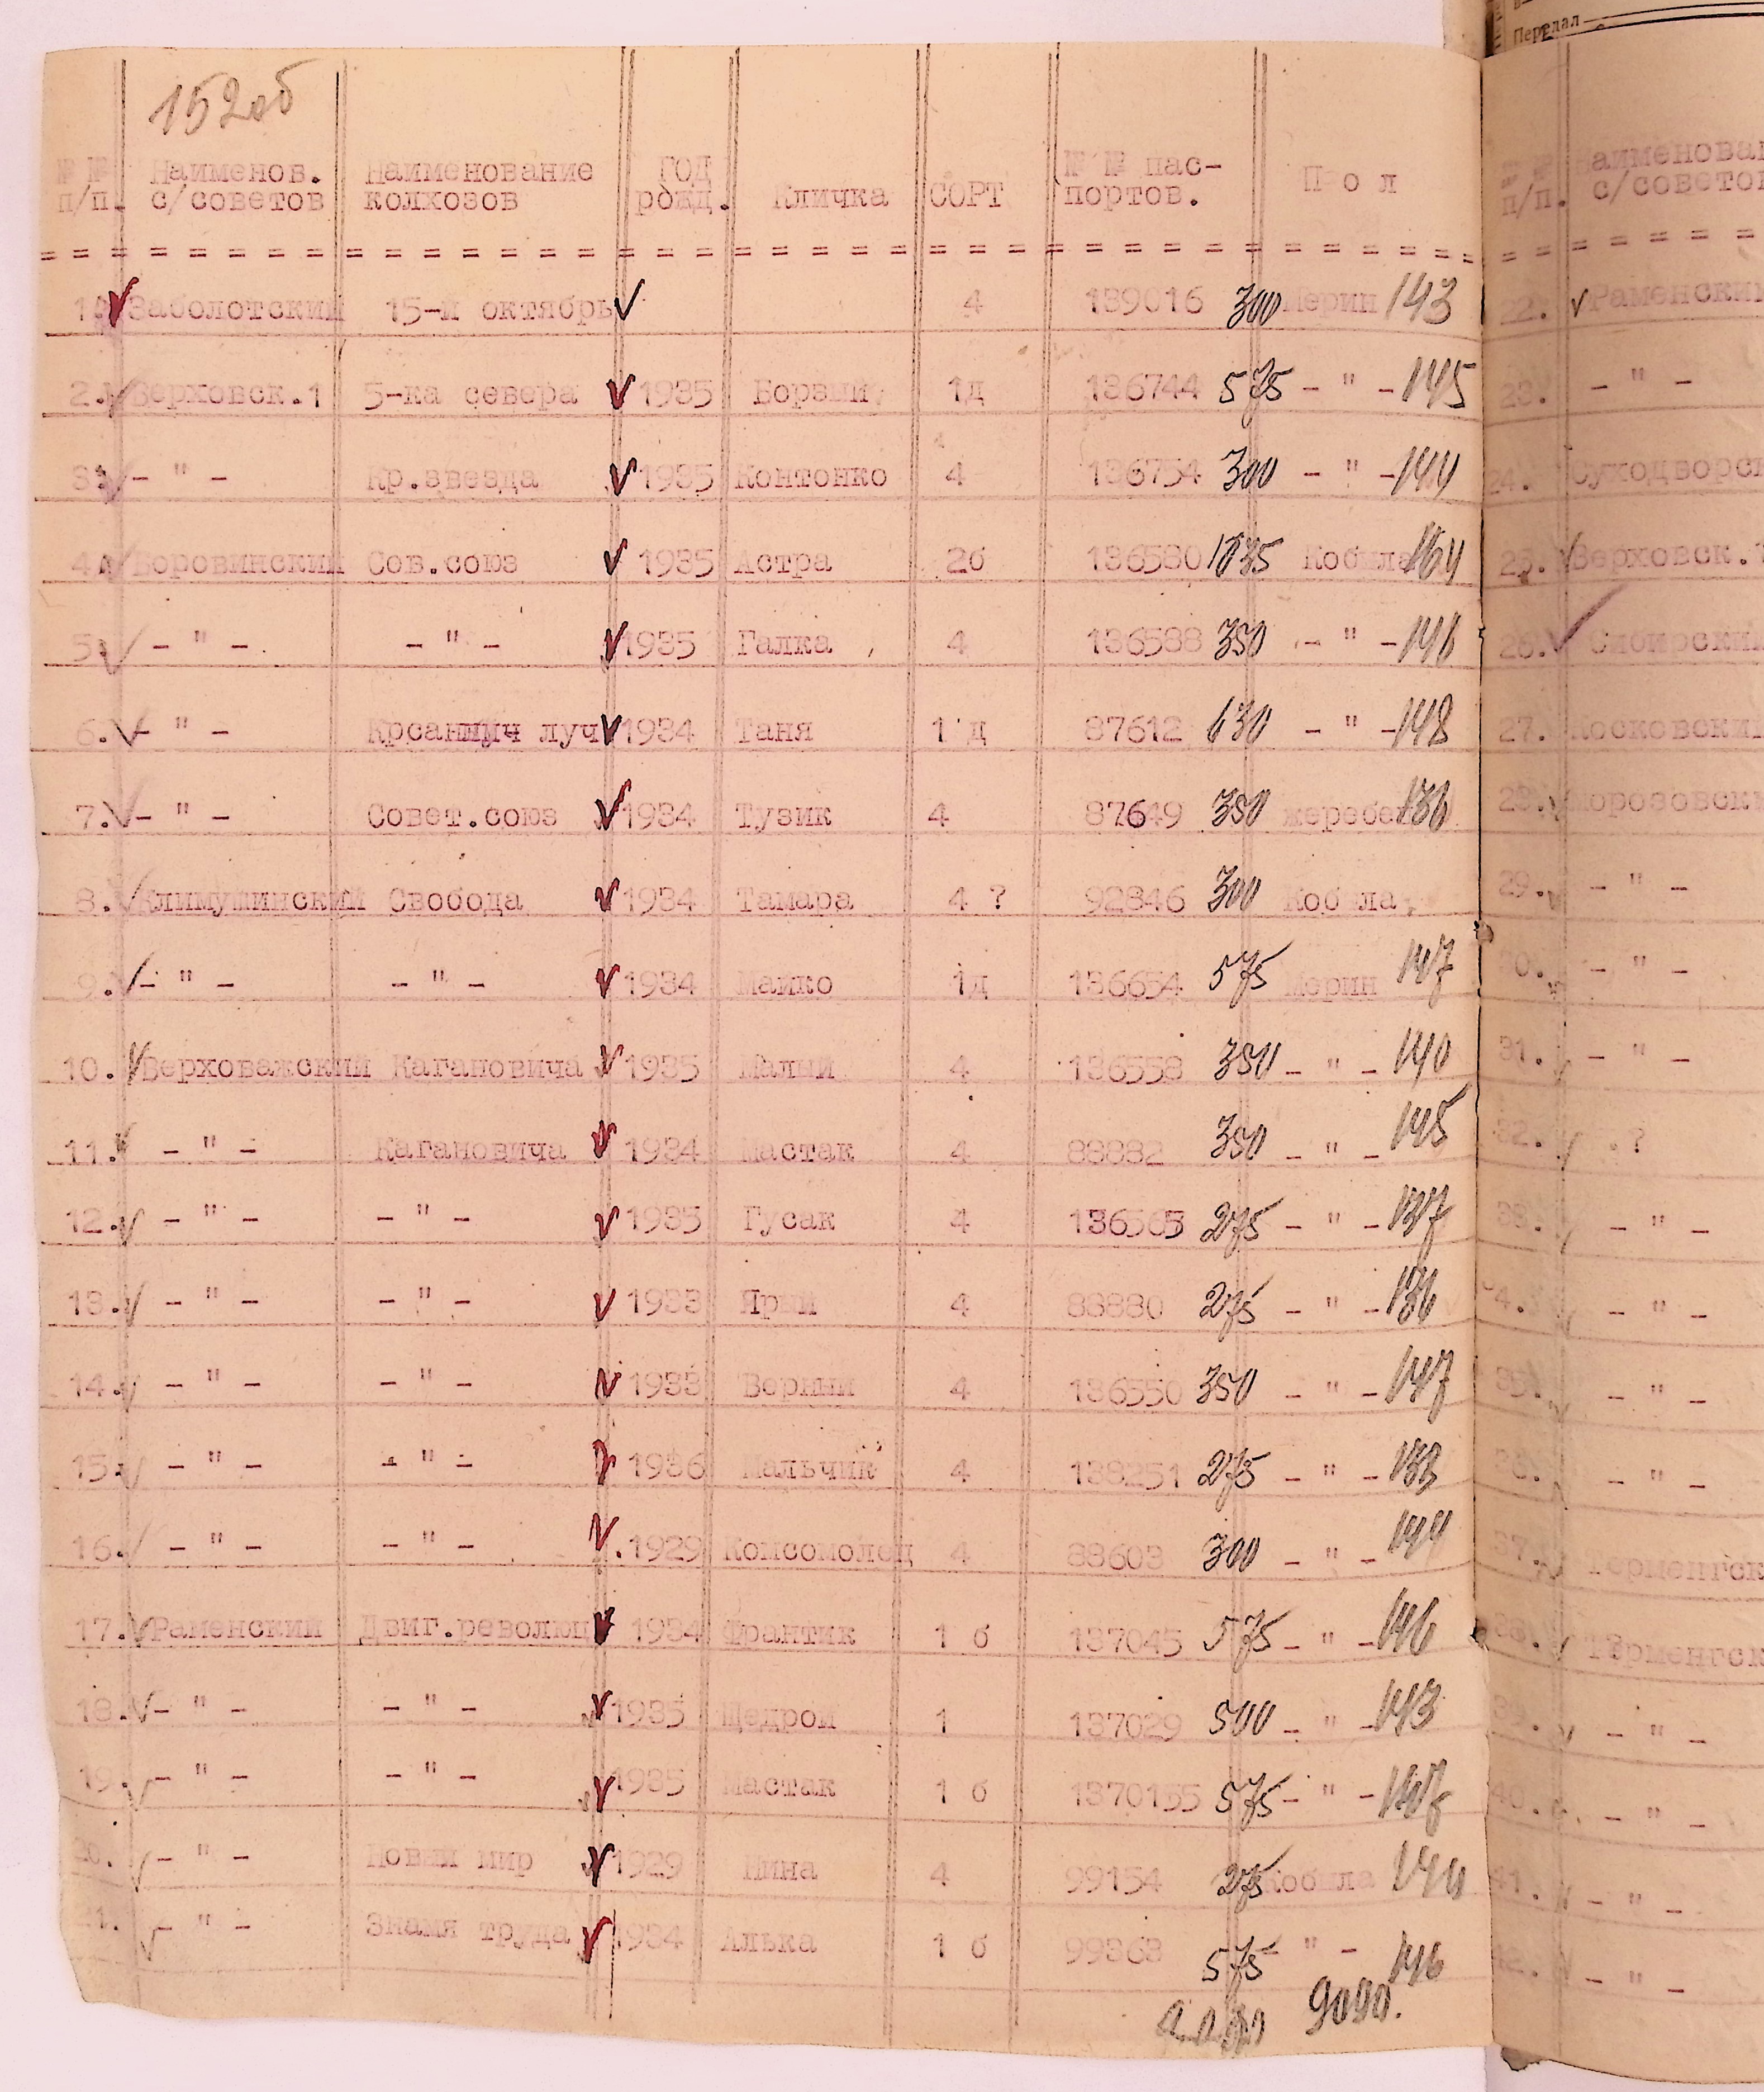 Передал
152об
№ № Наименов. Наименование ГОД Кличка СОРТ № № пас- П о л
п/п. с/советов колхозов рожд. портов.
1. Заболотский 15-й октябрь 4 139016 300 Мерин 143
2. Верховск.1 5-ка севера 1935 Борзый 1д 136744 575 - " - 145
3. - " - Кр.звезда 1935 Контонко 4 136754 300 - " - 144
4. Боровинский Сов.союз 1935 Астра 2б 136580 Кобыла 164
5. - " - - " - 1935 Галка 4 136588 350 - " - 146
6. - " - луч 1934 Таня 1 д 87612 630 - " - 148
7. - " - Совет.союз 1934 Тузик 4 87649 350 жеребец 136
8. Климушинский Свобода 1934 Тамара 4 ? 92846 300 Кобыла
9. - " - - " - 1934 Майко 1д 136654 575 Мерин 147
10. Верховажский Кагановича 1935 Малый 4 136558 350 - " - 140
11. - " - Кагановича 1934 Мастак 4 88882 350 - " - 145
12. - " - - " - 1935 Гусак 4 136565 275 - " - 137
13. - " - - " - 1933 Ярый 4 88880 275 - " - 136
14. - " - - " - 1933 Верный 4 136550 350 - " - 147
15. - " - - " - 1936 Мальчик 4 138251 275 - " - 133
16. - " - - " - 1929 Комсомолец 4 88608 300 - " - 144
17. Раменский Двиг.революц 1934 Франтик 1 б 137045 575 - " - 146
18. - " - - " - 1935 Щедрой 1 137029 500 - " - 143
19. - " - - " - 1935 Мастак 1 б 1370155 575 - " -
20. - " - Новый мир 1929 Нина 4 99154 275 Кобыла 144
21. - " - Знамя труда 1934 Алька 1 б 99363 575 - " - 146
9090.
№ № Наименован
п/п. с/советов
22. Раменский
23. - " -
24. Суходворск
25. Верховск.1
26. Сибирский
27. Московский
28. Морозовский
29. - " -
30. - " -
31. - " -
32. . ?
33. - " -
34. - " -
35. - " -
36. - " -
37. Терменгск
38. Терменгск
39. - " -
40. - " -
41. - " -
42. - " -